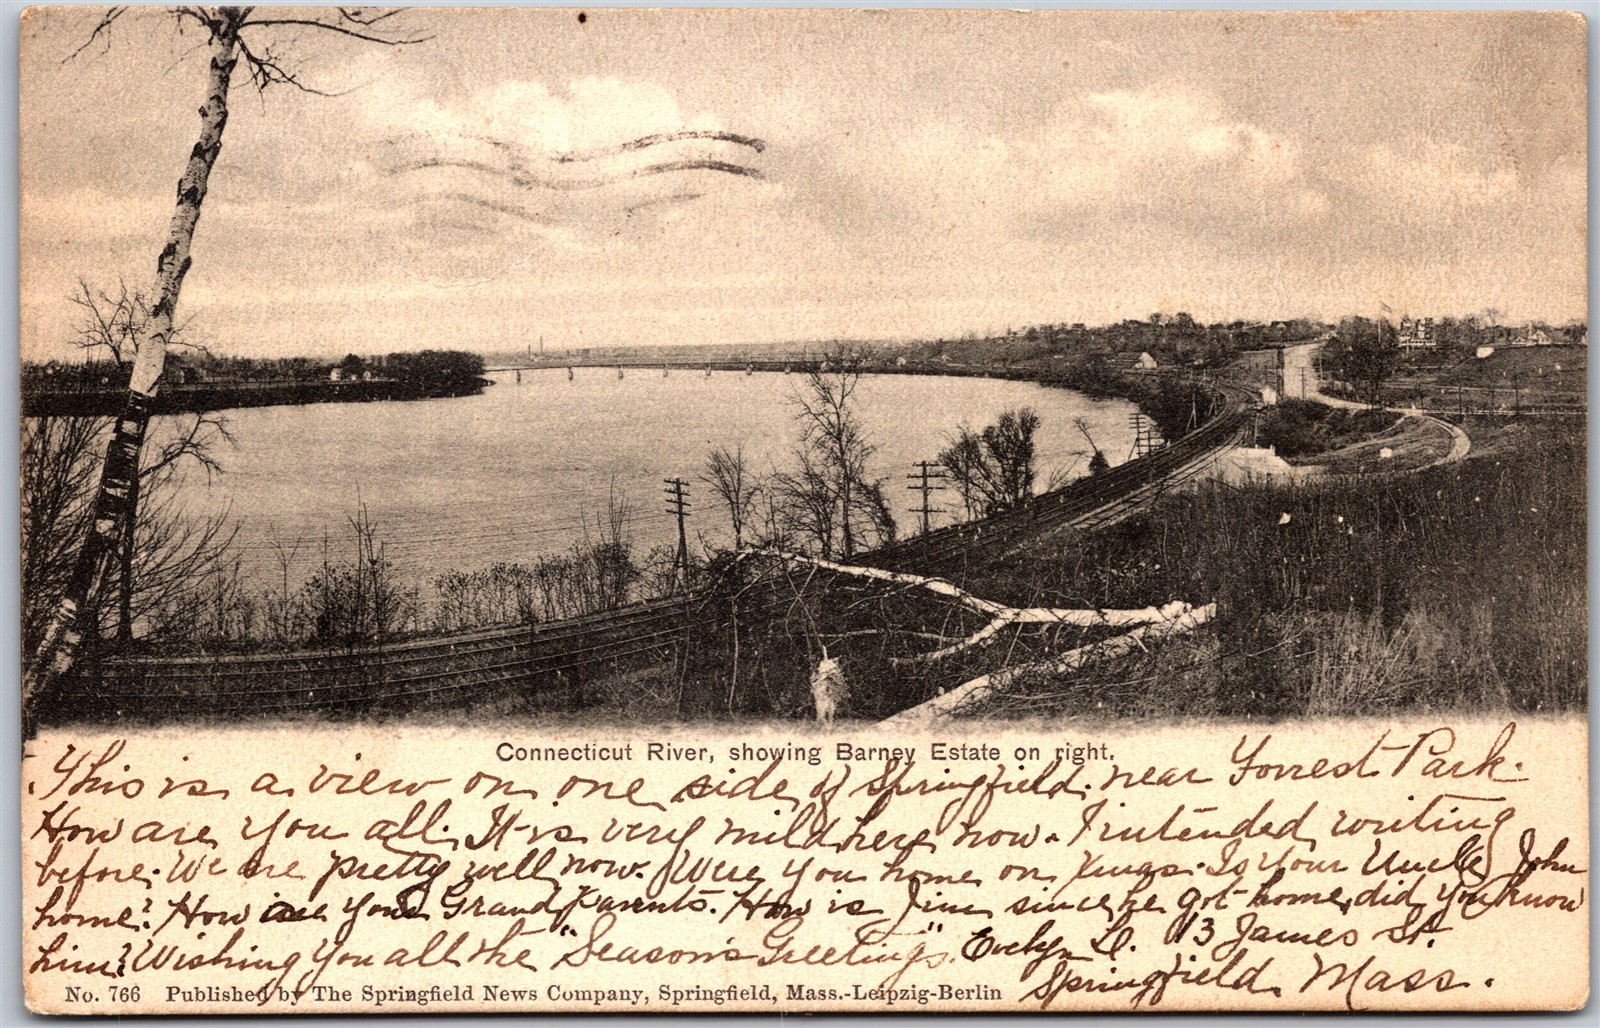 Connecticut River, showing Barney Estate on right.
This is a view on one side of Springfield. near Forrest Park.
How are you all. It is very mild here now. I intended writing
before. We are pretty well now. Were you home on Xmas. Is your Uncle John
home? How are your Grand Parents. How is Jim since he got home, did you know
him? Wishing you all the "Season's Greetings". Evelyn D. 13 James St.
Springfield. Mass.
No. 766 Published by The Springfield News Company, Springfield, Mass.-Leipzig-Berlin